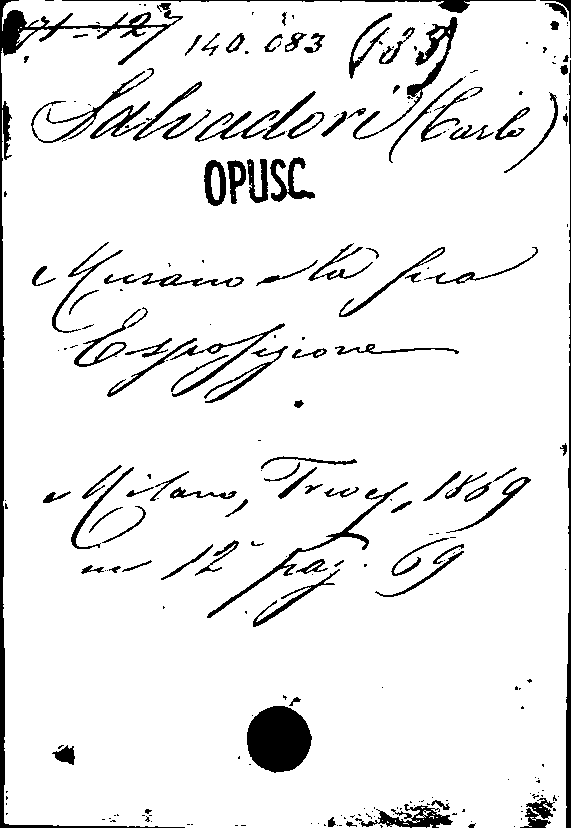 71-127 140.083 (183)
Salvadori (Carlo)
OPUSC.
Murano e la sua
Esposizione
Milano, Treves, 1869
in 12° pag. 69